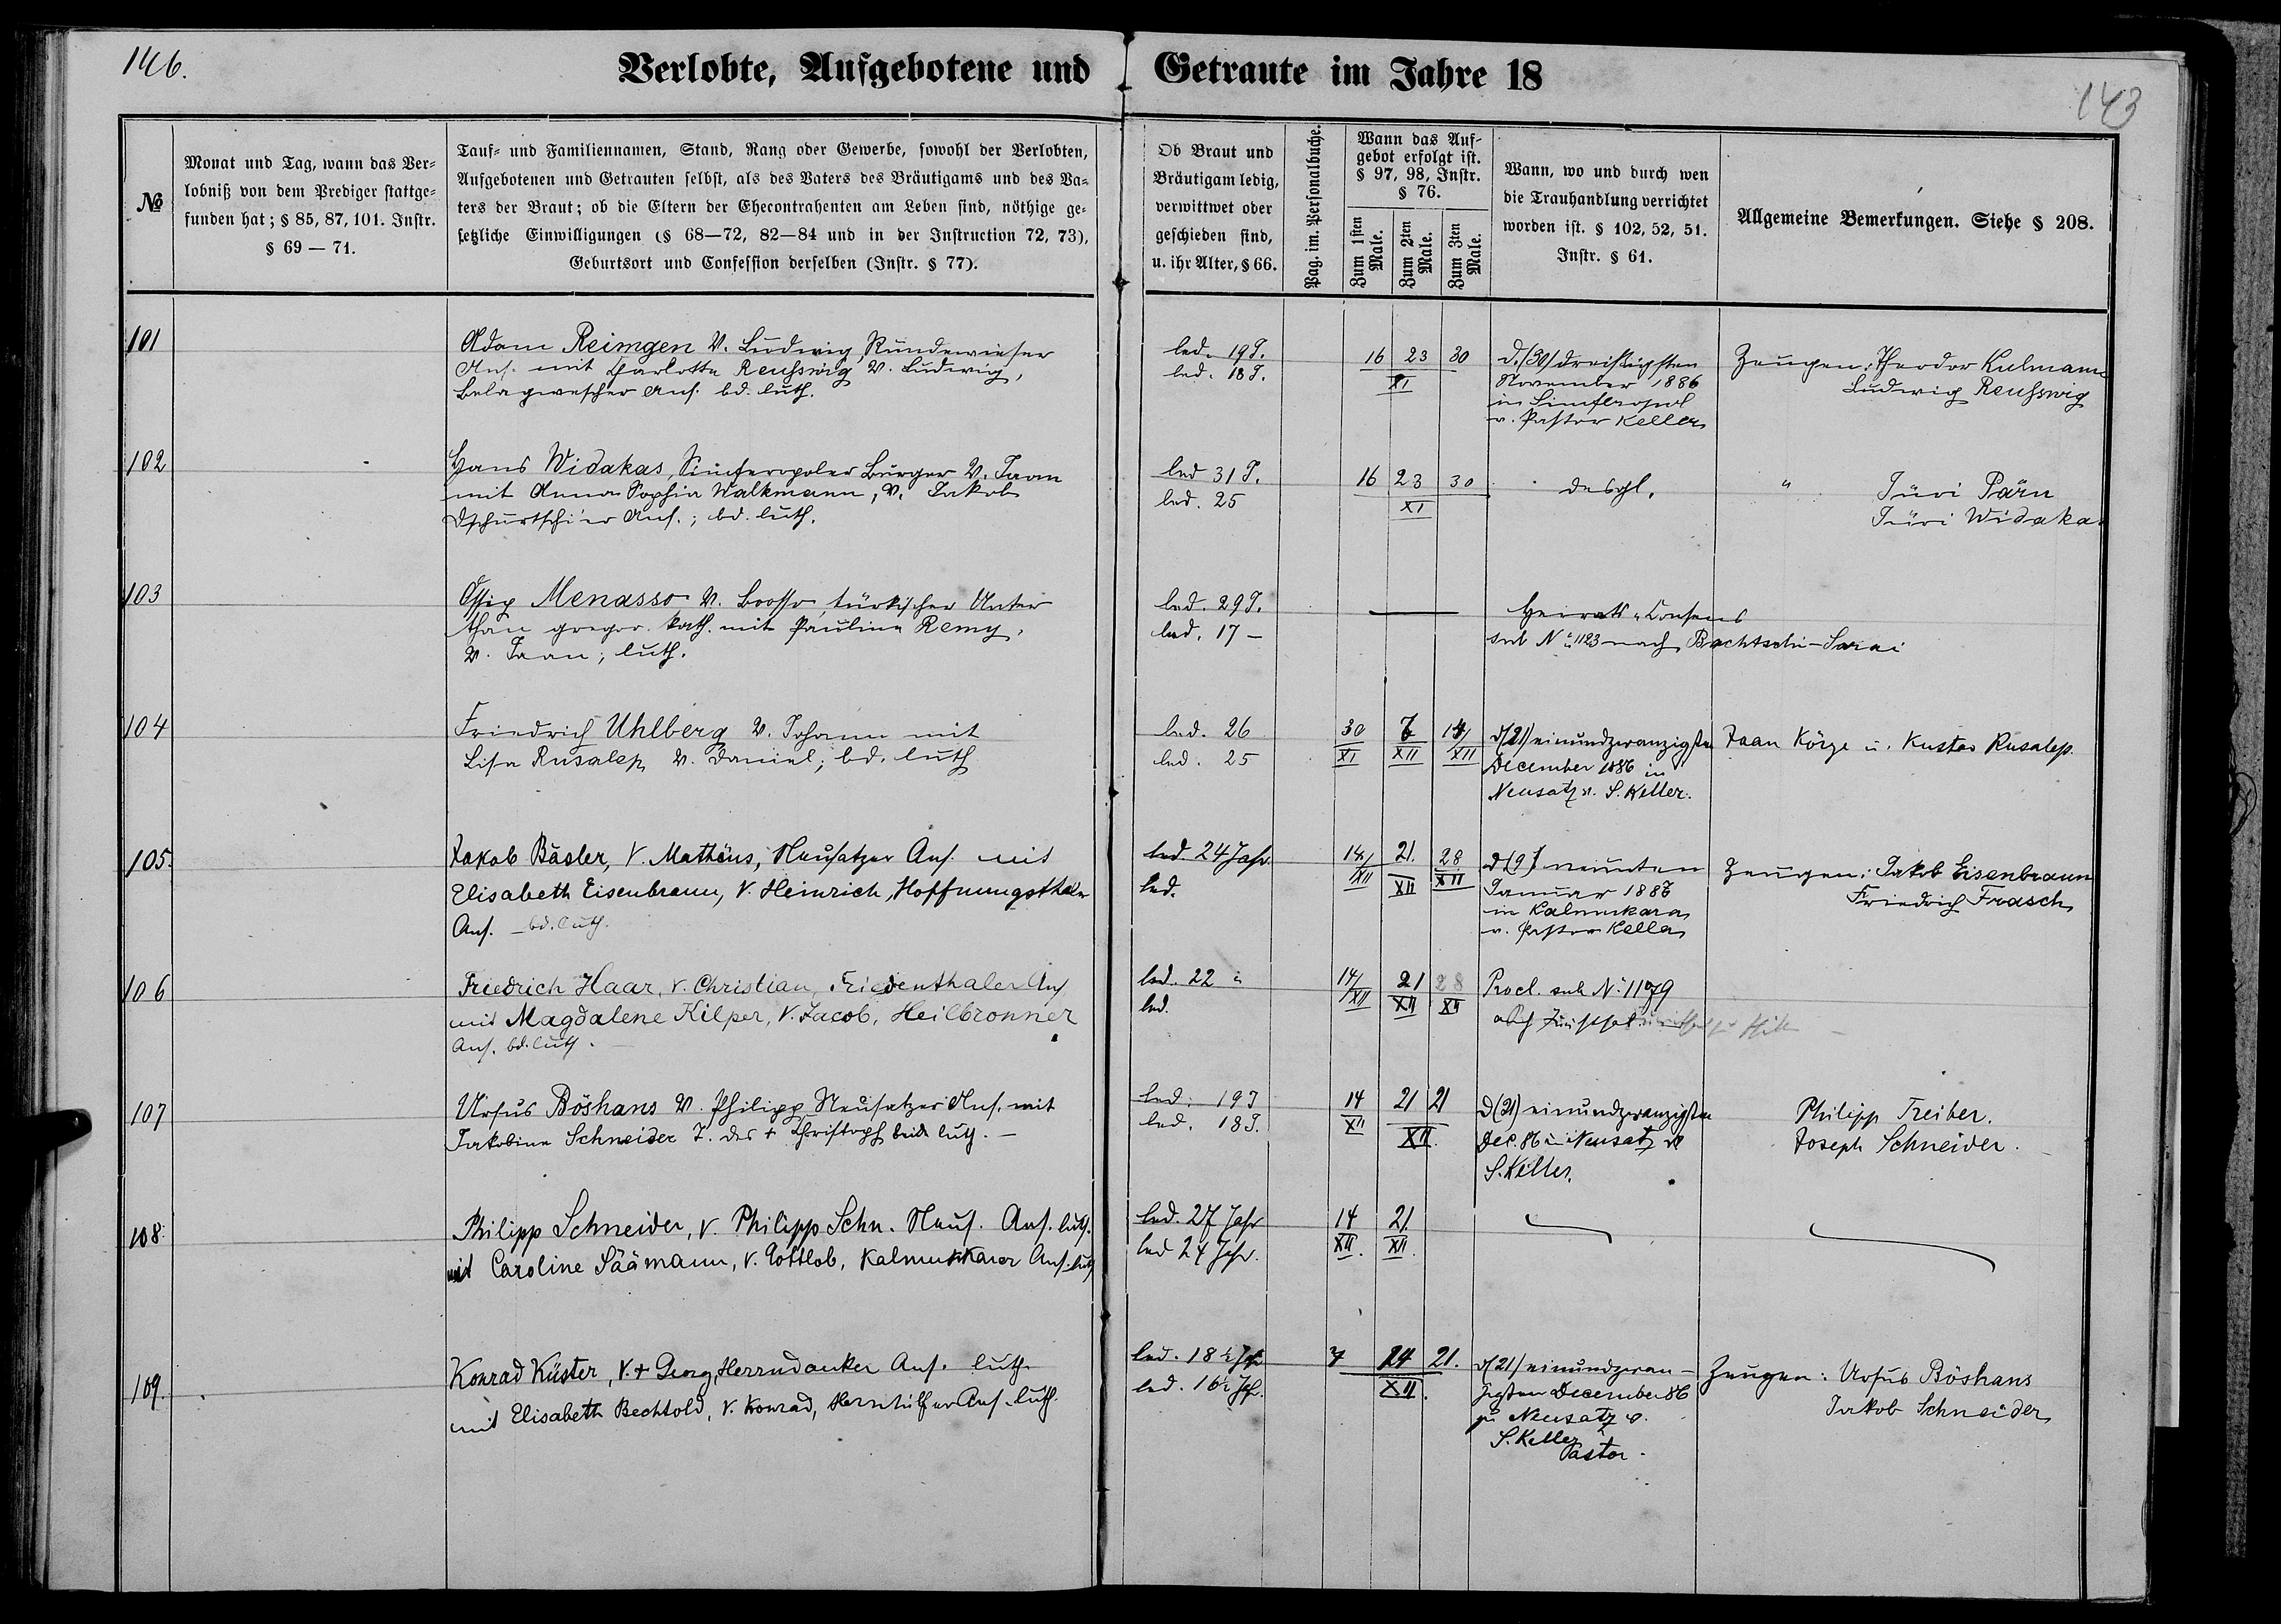 146.
Verlobte, Aufgebotene und Getraute im Jahre 18
143
№
Monat und Tag, wann das Ver-
lobniß von dem Prediger stattge-
funden hat; § 85, 87, 101. Instr.
§ 69 — 71.
Tauf- und Familiennamen, Stand, Rang oder Gewerbe, sowohl der Verlobten,
Aufgebotenen und Getrauten selbst, als des Vaters des Bräutigams und des Va-
ters der Braut; ob die Eltern der Ehecontrahenten am Leben sind, nöthige ge-
setzliche Einwilligungen (§ 68—72, 82—84 und in der Instruction 72, 73),
Geburtsort und Confession derselben (Instr. § 77).
Ob Braut und
Bräutigam ledig,
verwittwet oder
geschieden sind,
u. ihr Alter, § 66.
Pag. im. Personalbuche.
Wann das Auf-
gebot erfolgt ist.
§ 97, 98, Instr.
§ 76.
Zum 1sten
Male.
Zum 2ten
Male.
Zum 3ten
Male.
Wann, wo und durch wen
die Trauhandlung verrichtet
worden ist. § 102, 52, 51.
Instr. § 61.
Allgemeine Bemerkungen. Siehe § 208.
101
Adam Reimgen V. Ludwig, Rundewieser
Ans. mit Charlotte Reußwig V. Ludwig,
Ans. bd. luth.
led. 19 J.
led. 18 J.
16 23 30
XI
d. (30) dreißigsten
November 1886
in Simferopol
v. Pastor Keller
Zeugen: Theodor Kulmann
Ludwig Reußwig
102
Hans Widakas, Simferopoler Bürger V. Jaan
mit Anna Sophia Walkmann, V. Jakob
Ans.; bd. luth.
led 31 J.
led. 25
16 23 30
XI
desgl.
" Jüri Pärn
Jüri Widakas
103
Ossip Menasso V. türkischer Unter
than gregor. kath. mit Pauline Remy,
V. Jaan; luth.
led. 29 J.
led. 17 —
Heirats-Consens
sub N: 1123 nach Bachtschi-Sarai
104
Friedrich Uhlberg V. Johann mit
Lisa Rusalep V. Daniel; bd. luth
led. 26
led. 25
30 7 14
XI XII XII
d (21) einundzwanzigsten
December 1886 in
Neusatz v. S. Keller.
Jaan Körge u. Kustas Rusalep.
105.
Jakob Bäsler, V. Mathäus, Neusatzer Ans. mit
Elisabeth Eisenbraun, V. Heinrich, Hoffnungsthaler
Ans. — bd. luth.
led. 24 Jahr.
led.
14 21. 28
XII XII XII
d (9) neunten
Januar 1887
in Kalmukara
v. Pastor Keller
Zeugen: Jakob Eisenbraun
Friedrich Frasch
106
Friedrich Haar, V. Christian, Friedenthaler Ans
mit Magdalene Kilper, V. Jacob, Heilbronner
Ans. bd. luth. —
led. 22 "
led.
14 21 28
XII XII XII
Procl. sub N: 1179
107
Ursus Böshans V. Philipp Neusatzer Ans. mit
Jakobine Schneider T. des + Christoph beide luth. —
led. 19 J
led. 18 J.
14 21 21
XII XII.
d (21) einundzwanzigsten
Dec. 86 in Neusatz v
S. Keller.
Philipp Treiber.
Joseph Schneider.
108.
Philipp Schneider, V. Philipp Schn. Neus. Ans. luth.
mit Caroline Säämann, V. Gottlob, Kalmukkarer Ans. luth
led. 27 Jahr
led 24 Jahr.
14 21
XII. XII.
109.
Konrad Küster, V. + Georg, Ans. luth.
mit Elisabeth Bechtold, V. Konrad, Ans. luth.
led. 18 ½ Jhr
led. 16 ½ Jhr.
7 14 21.
XII.
d (21) einundzwan-
zigsten December 86
zu Neusatz v.
S. Keller
Pastor.
Zeugen: Ursus Böshans
Jakob Schneider